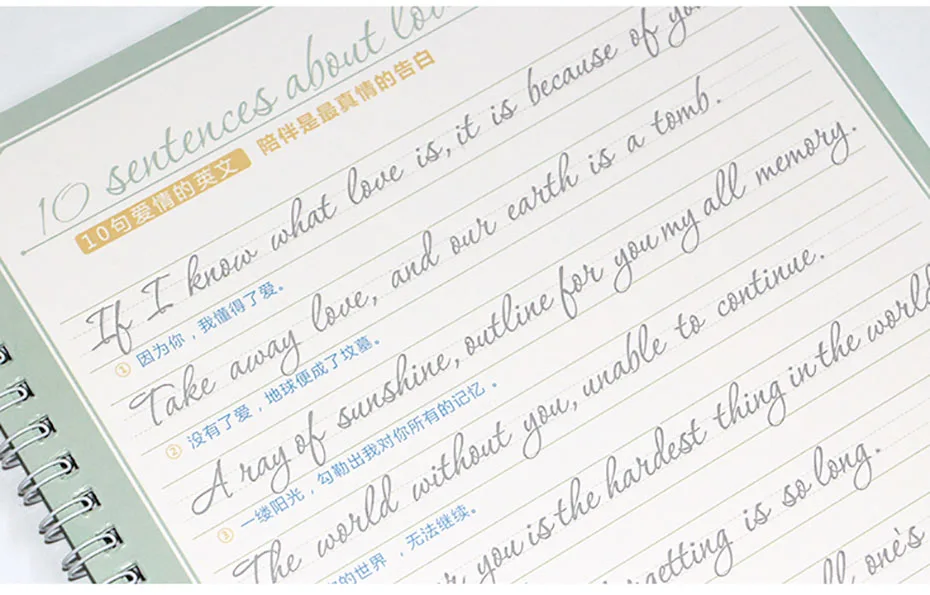 10 sentences about
10句爱情的英文 陪伴是最真情的告白
If I know what love is, it is because of
① 因为你，我懂得了爱。
Take away love, and our earth is a tomb.
② 没有了爱，地球便成了坟墓。
A ray of sunshine, outline for you my all memory.
③ 一缕阳光，勾勒出我对你所有的记忆。
The world without you, unable to continue.
的世界，无法继续。
you is the hardest thing in the world
is so long.
all one's